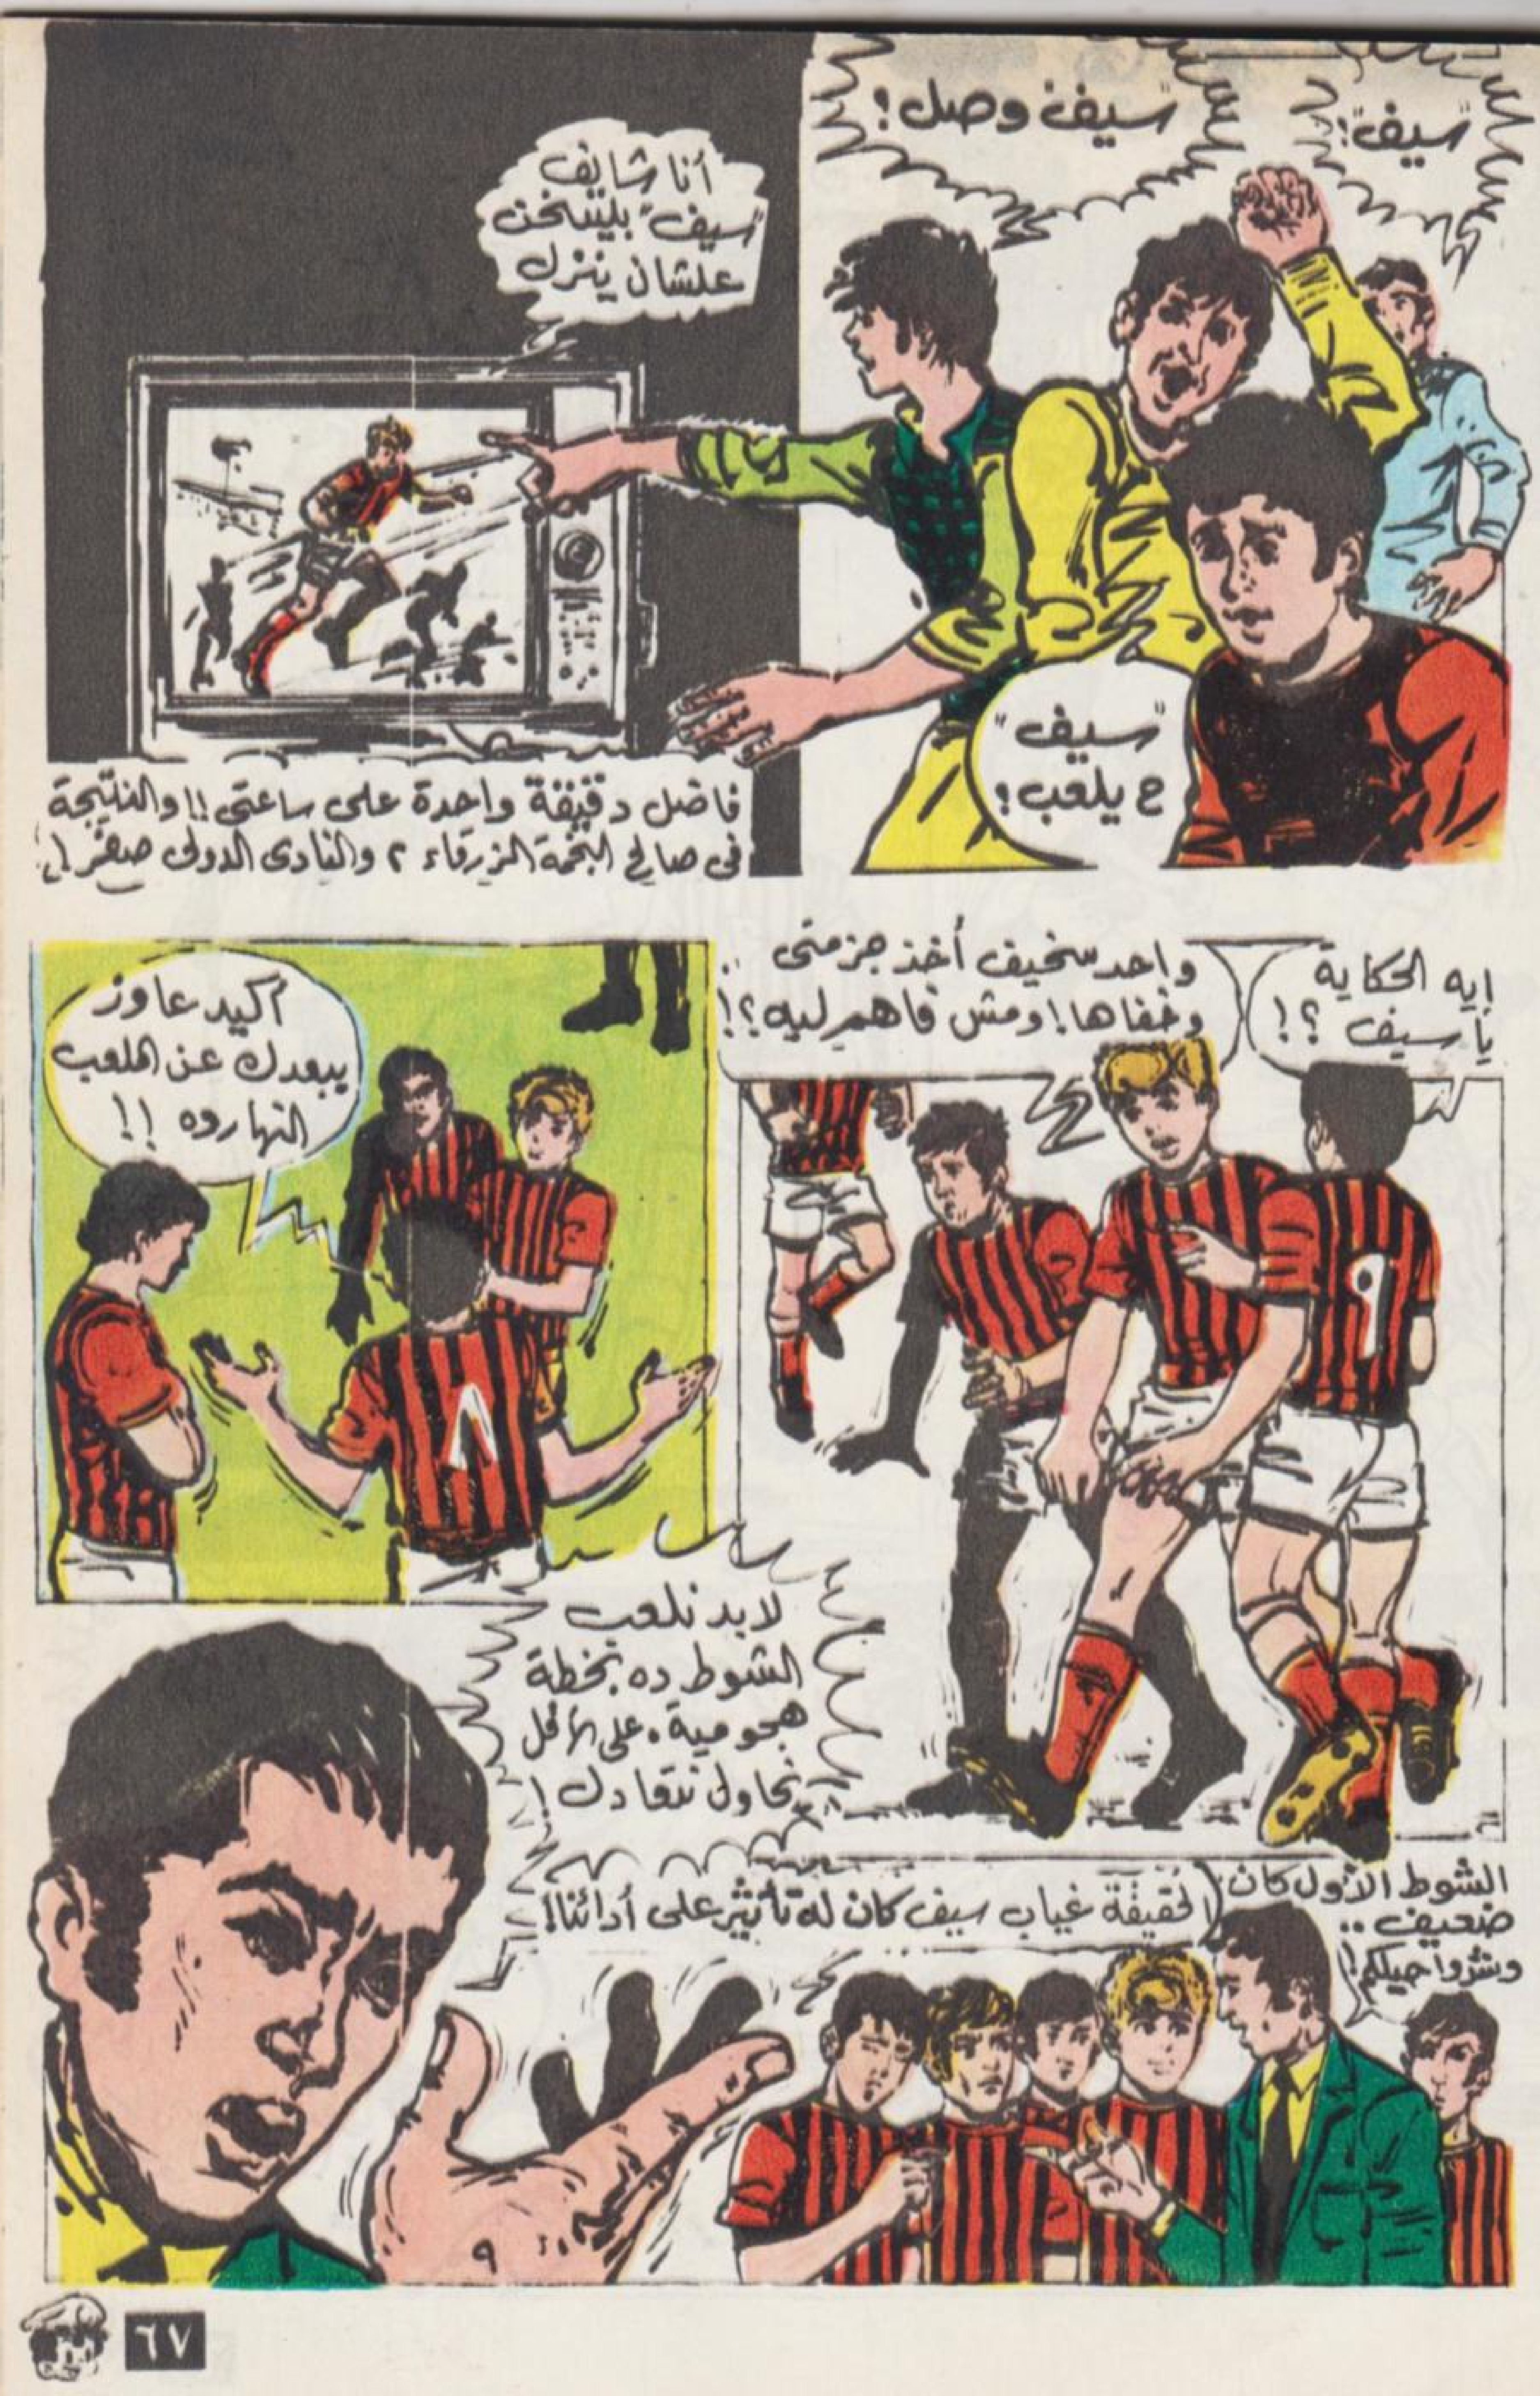 "سيف"!
"سيف" وصل!
أنا شايف
"سيف" بيسخن
علشان ينزل
"سيف"
ح يلعب!
فاضل دقيقة واحدة على ساعتى!! والنتيجة
فى صالح النجمة الزرقاء ٢ والنادى الدولى صفر!!
إيه الحكاية
يا سيف ؟!
واحد سخيف أخذ جزمتى
وخفاها! ومش فاهم ليه؟!
٩
أكيد عاوز
يبعدك عن الملعب
النهارده !!
٨
الشوط الأول كان
ضعيف ..
وشدوا حيلكم!
الحقيقة غياب سيف كان له تأثير على أدائنا!
لابد نلعب
الشوط ده بخطة
هجومية. على الأقل
نحاول نتعادل!
٩
٦٧